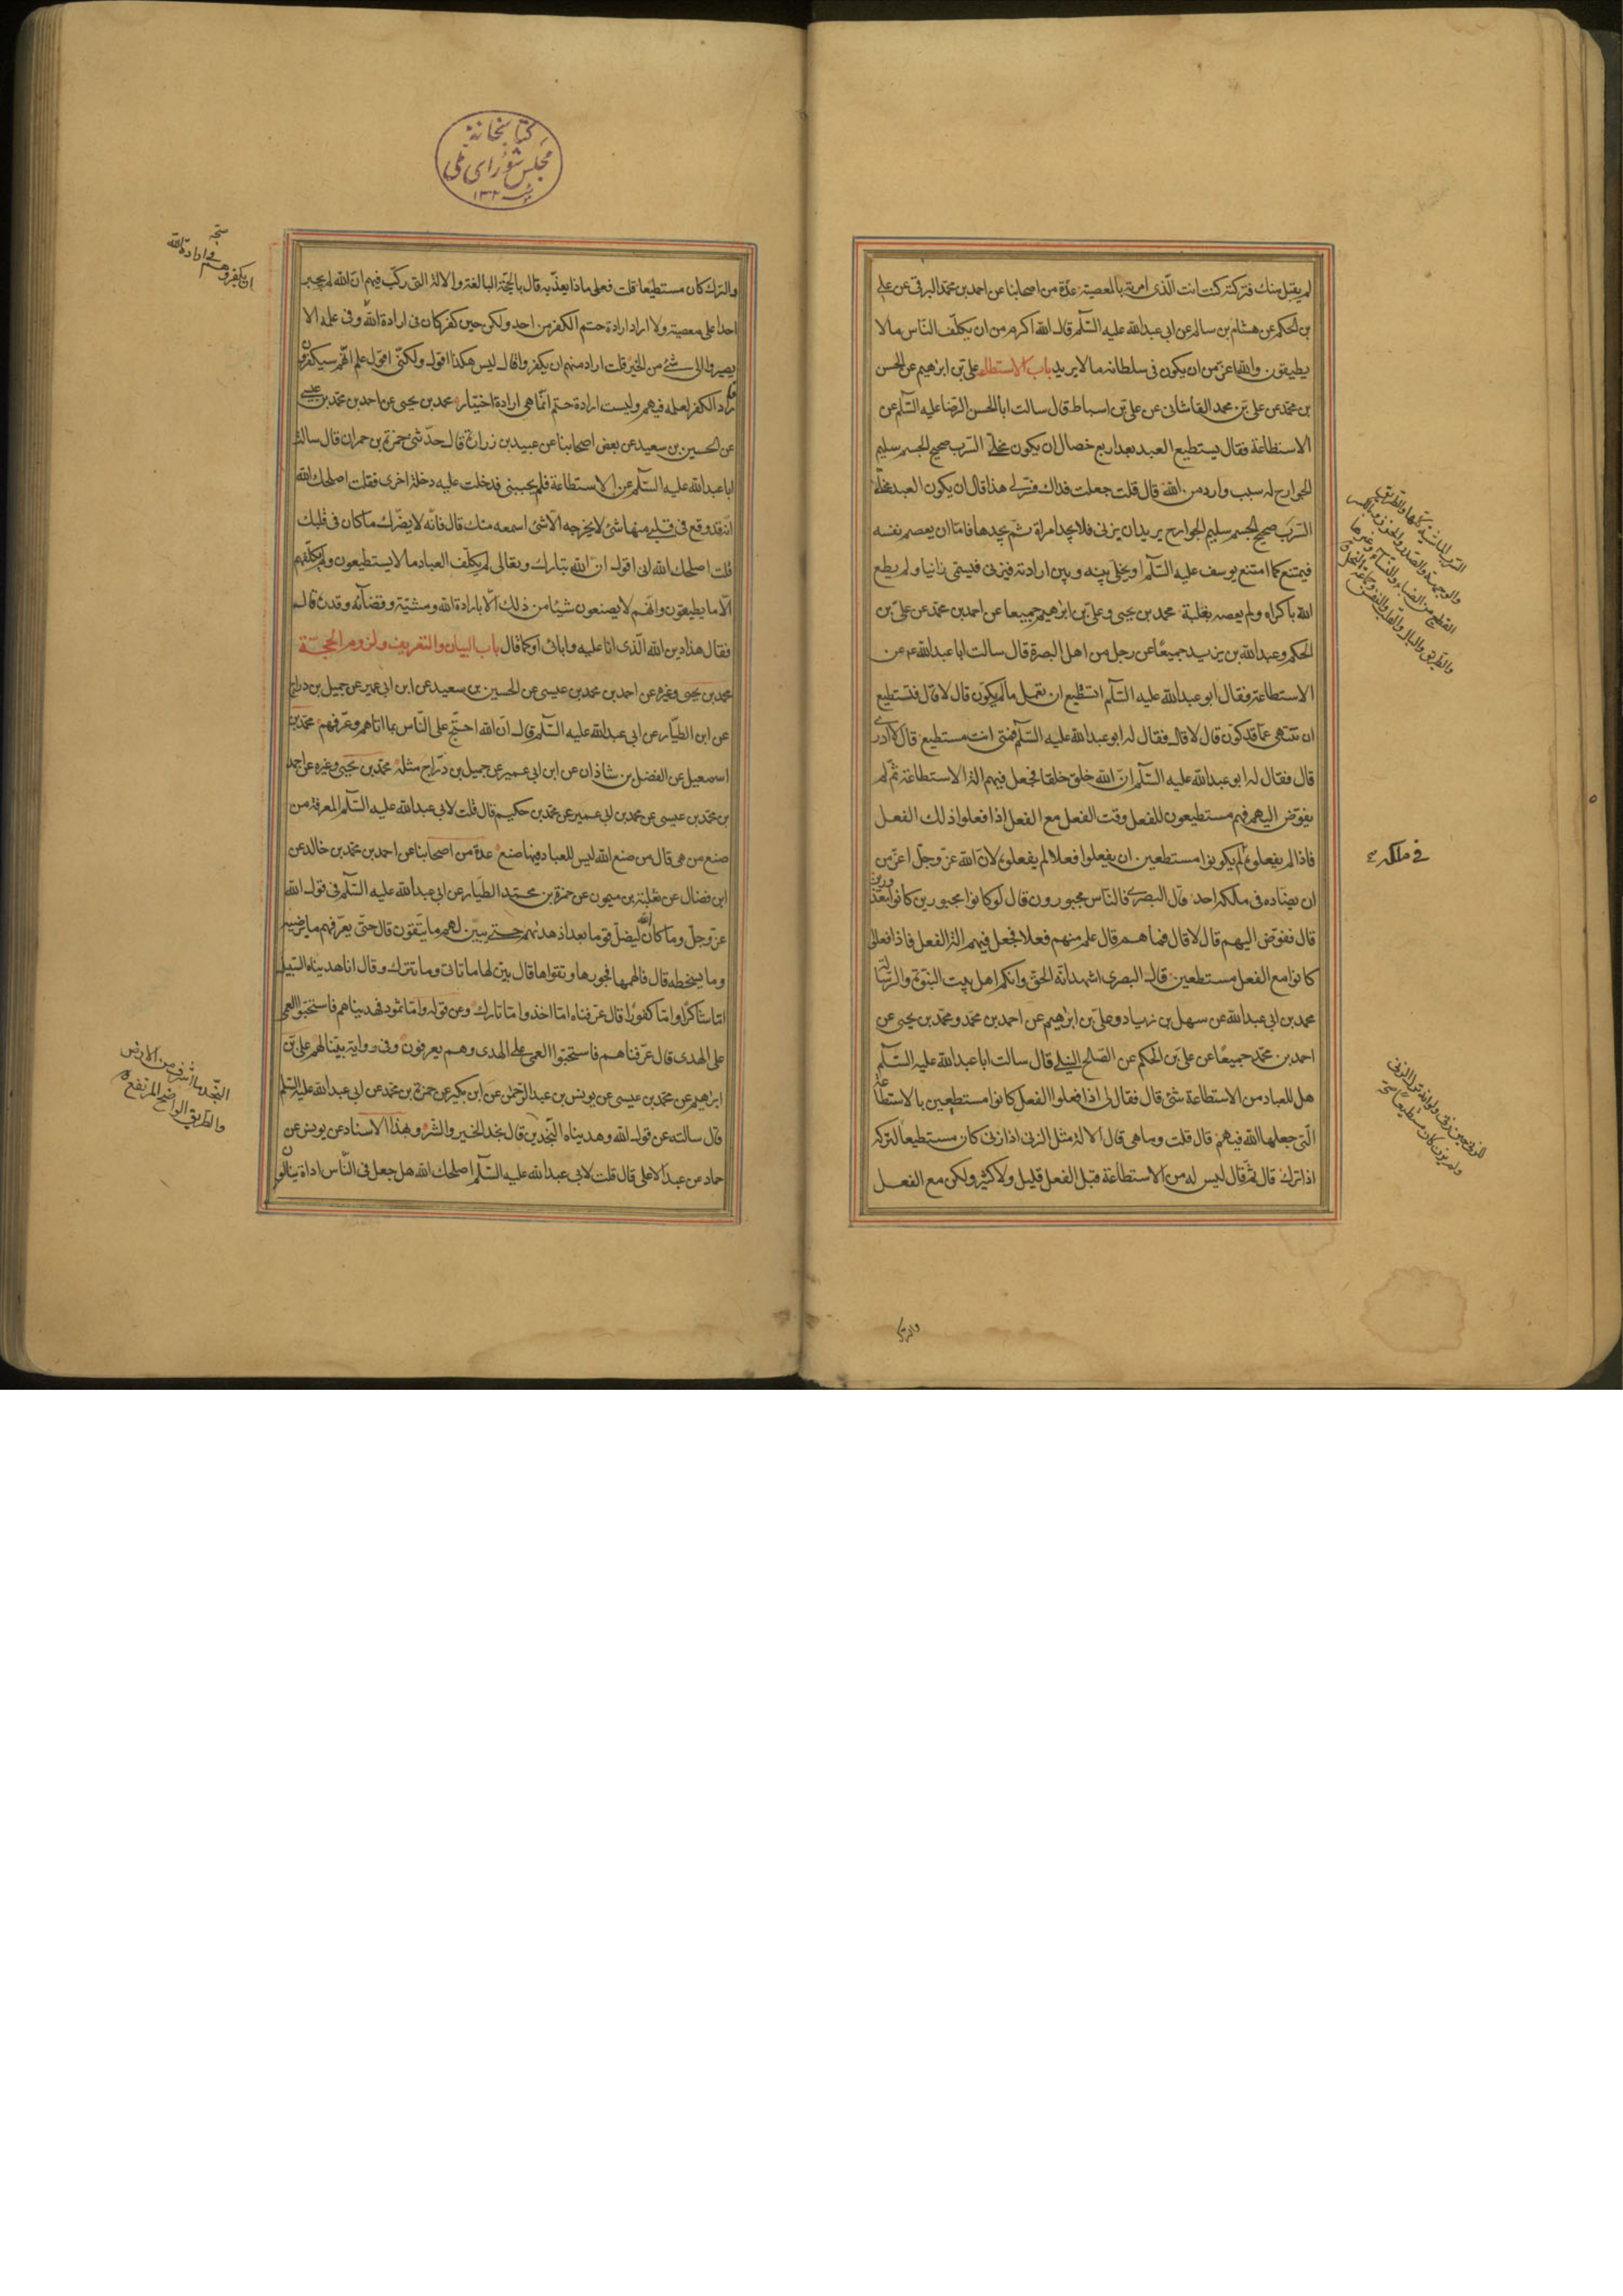 لم يقبل منك فتركته كنت انت الّذى امرته بالمعصية عدّة من اصحابنا عن احمد بن محمّد البرقى عن على
بن الحكم عن هشام بن سالم عن ابى عبدالله عليه السّلم قال الله اكرم من ان يكلّف النّاس مالا
يطيقون والله اعزّ من ان يكون فى سلطانه مالا يريد باب الاستطاعة علىّ بن ابرهيم عن الحسن
بن محمّد عن علىّ بن محمد القاشانى عن علىّ بن اسباط قال سالت ابا الحسن الرّضا عليه السّلم عن
الاستطاعة فقال يستطيع العبد بعد اربع خصال ان يكون مخلّى السّرب صحيح الجسم سليم
الجوارح له سبب وارد من الله قال قلت جعلت فداك فسّر لى هذا قال ان يكون العبد مخلّى
السّرب صحيح الجسم سليم الجوارح يريد ان يزنى فلا يجد امراة ثمّ يجدها فامّا ان يعصم نفسه
فيمتنع كما امتنع يوسف عليه السّلم او يخلّى بينه وبين ارادته فيزنى فيسمّى زانيا ولم يطع
الله باكراه ولم يعصه بغلبة محمد بن يحيى وعلىّ بن ابرهيم جميعا عن احمد بن محمّد عن علىّ بن
الحكم وعبدالله بن يزيد جميعًا عن رجل من اهل البصرة قال سالت ابا عبدالله ع عن
الاستطاعة فقال ابو عبدالله عليه السّلم اتستطيع ان تعمل مالم يكوّن قال لا قال فتستطيع
ان تنتهى عمّا قد كوّن قال لا قال فقال له ابو عبدالله عليه السّلم فمتى انت مستطيع قال لا ادرى
قال فقال له ابو عبدالله عليه السّلم انّ الله خلق خلقا فجعل فيهم الة الاستطاعة ثمّ لم
يفوّض اليهم فهم مستطيعون للفعل وقت الفعل مع الفعل اذا فعلوا ذلك الفعل
فاذا لم يفعلوه لم يكونوا مستطيعين ان يفعلوا فعلا لم يفعلوه لانّ الله عزّ وجلّ اعزّ من
ان يضادّه فى ملكه احد قال البصرى فالنّاس مجبورون قال لو كانوا مجبورين كانوا معذورين
قال ففوّض اليهم قال لا قال فما هم قال علم منهم فعلا فجعل فيهم الة الفعل فاذا فعلوا
كانوا مع الفعل مستطيعين قال البصرى اشهد انّه الحقّ وانّكم اهل بيت النّبوّة والرّسالة
محمد بن ابى عبدالله عن سهل بن زياد وعلىّ بن ابرٰهيم عن احمد بن محمّد ومحمّد بن يحيى عن
احمد بن محمّد جميعًا عن علىّ بن الحكم عن الصّالح النيلى قال سالت ابا عبدالله عليه السّلم
هل للعباد من الاستطاعة شئ قال فقال لى اذا فعلوا الفعل كانوا مستطيعين بالاستطاعة
الّتى جعلها الله فيهم قال قلت وما هى قال الالة مثل الزنى اذا زنى كان مستطيعا لتركه
اذا ترك قال ثمّ قال ليس له من الاستطاعة قبل الفعل قليل ولا كثير ولكن مع الفعل
فى ملكه
والترك
كتابخانهٔ
مجلس شورای ملی
والترك كان مستطيعا قلت فعلى ماذا يعذّبه قال بالحجّة البالغة والالة التى ركّب فيهم انّ الله لم يجبر
احدا على معصيته ولا اراد ارادة حتم الكفر من احد ولكن حين كفر كان فى ارادة الله وفى علمه الا
يصيروا الى شئ من الخير قلت اراد منهم ان يكفروا قال ليس هكذا اقول ولكنّى اقول علم انّهم سيكفرون
فاراد الكفر لعلمه فيهم وليست ارادة حتم انّما هى ارادة اختيار محمد بن يحيى عن احمد بن محمّد بن عيسى
عن الحسين بن سعيد عن بعض اصحابنا عن عبيد بن زرارة قال حدّثنى حمزة بن حمران قال سالت
ابا عبدالله عليه السّلم عن الاستطاعة فلم يجبنى فدخلت عليه دخلة اخرى فقلت اصلحك الله
انّه قد وقع فى قلبى منها شئ لا يخرجه الّا شئ اسمعه منك قال فانّه لا يضرّك ما كان فى قلبك
قلت اصلحك الله انى اقول انّ الله تبارك وتعالى لم يكلّف العباد مالا يستطيعون ولم يكلّفهم
الّا ما يطيقون وانّهم لا يصنعون شيئا من ذلك الّا بارادة الله ومشيّته وقضائه وقدره قال
فقال هذا دين الله الّذى انا عليه وابائى او كما قال باب البيان والتعريف ولزوم الحجّة
محمد بن يحيى وغيره عن احمد بن محمد بن عيسى عن الحسين بن سعيد عن ابن ابى عمير عن جميل بن درّاج
عن ابن الطيّار عن ابى عبدالله عليه السّلم قال انّ الله احتجّ على النّاس بما اتاهم وعرّفهم محمّد بن
اسمعيل عن الفضل بن شاذان عن ابن ابى عمير عن جميل بن درّاج مثله محمّد بن يحيى وغيره عن احمد
بن محمّد بن عيسى عن محمد بن ابى عمير عن محمّد بن حكيم قال قلت لابى عبدالله عليه السّلم المعرفة من
صنع من هى قال من صنع الله ليس للعباد فيها صنع عدّة من اصحابنا عن احمد بن محمّد بن خالد عن
ابن فضال عن ثعلبة بن ميمون عن حمزة بن محمّد الطيّار عن ابى عبدالله عليه السّلم فى قول الله
عزّ وجلّ وما كان الله ليضلّ قوما بعد اذ هديٰهم حتى يبيّن لهم ما يتّقون قال حتّى يعرّفهم ما يرضيه
وما يسخطه قال فالهمها فجورها وتقواها قال بيّن لها ما تاتى وما تترك وقال انا هديناه السّبيل
امّا شاكرًا وامّا كفورًا قال عرّفناه امّا اخذ وامّا تارك وعن قوله وامّا ثمود فهديناهم فاستحبّوا العمى
على الهدى قال عرّفناهم فاستحبّوا العمى على الهدى وهم يعرفون وفى رواية بيّنا لهم علىّ بن
ابرهيم عن محمّد بن عيسى عن يونس بن عبدالرّحمٰن عن ابن بكير عن حمزة بن محمّد عن ابى عبدالله عليه السّلم
قال سالته عن قول الله وهديناه النّجدين قال نجد الخير والشّر وبهذا الاسناد عن يونس عن
حماد عن عبدالاعلى قال قلت لابى عبدالله عليه السّلم اصلحك الله هل جعل فى النّاس اداة ينالون
النّجد ما اشرف من الارض
والطّريق الواضح المرتفع